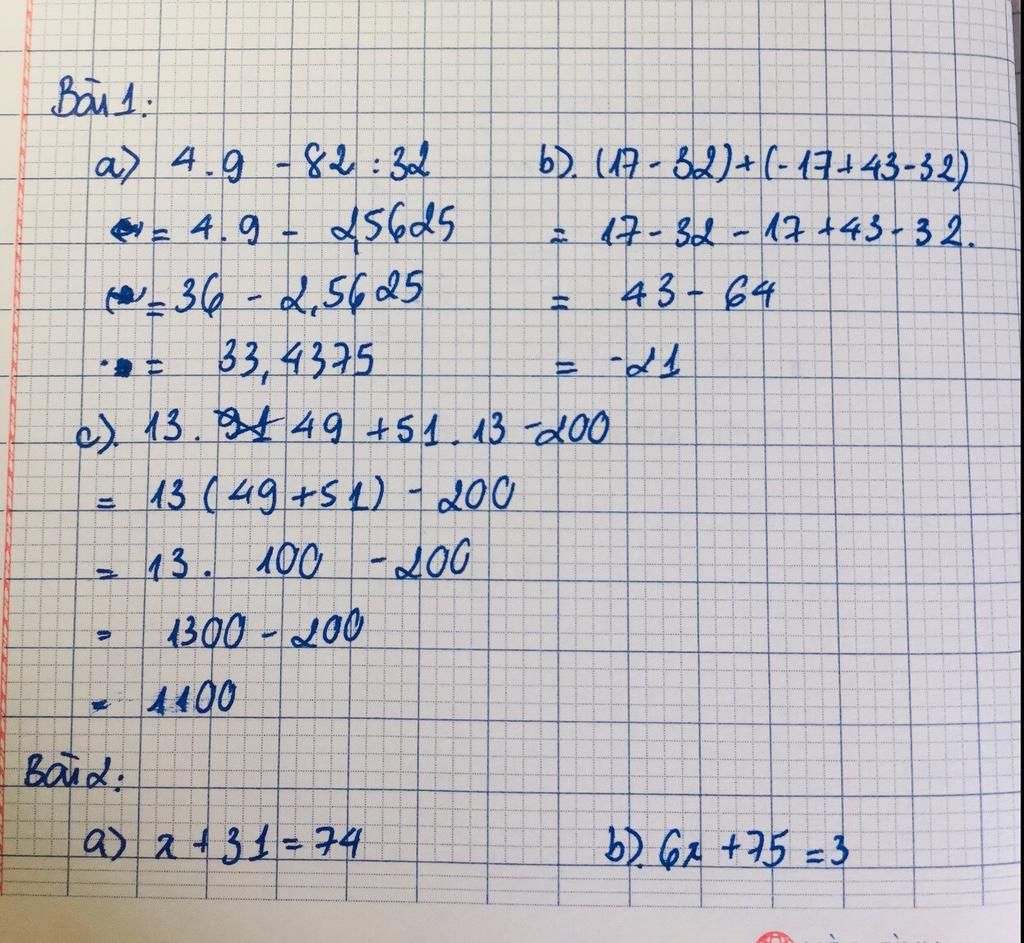 Bài 1:
a) 4.9 - 82 : 32
= 4.9 - 2,5625
= 36 - 2,5625
= 33,4375
b). (17 - 32) + (-17 + 43 - 32)
= 17 - 32 - 17 + 43 - 32.
= 43 - 64
= -21
c). 13. 49 + 51. 13 - 200
= 13 (49 + 51) - 200
= 13. 100 - 200
= 1300 - 200
= 1100
Bài 2:
a) x + 31 = 74
b). 6x + 75 = 3